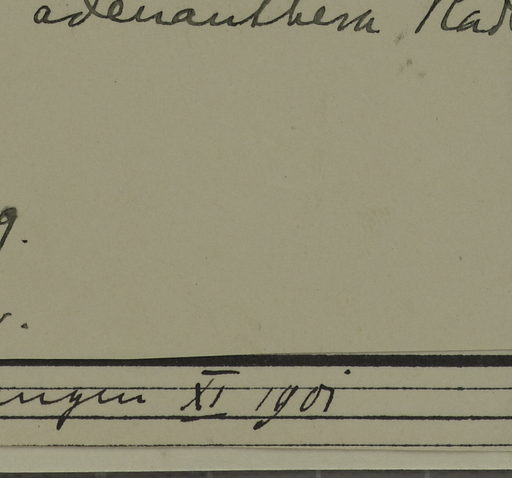 adenanthera Rad
g.
v.
ngen XI 1901